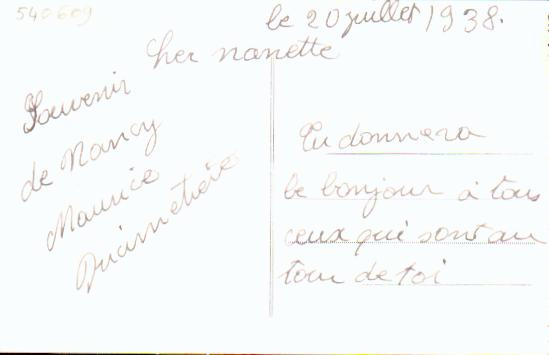 540609
le 20 juillet 1938.
Cher nanette
Souvenir
de Nancy
Maurice
Tu donnera
le bonjour à tous
ceux qui sont au
tour de toi